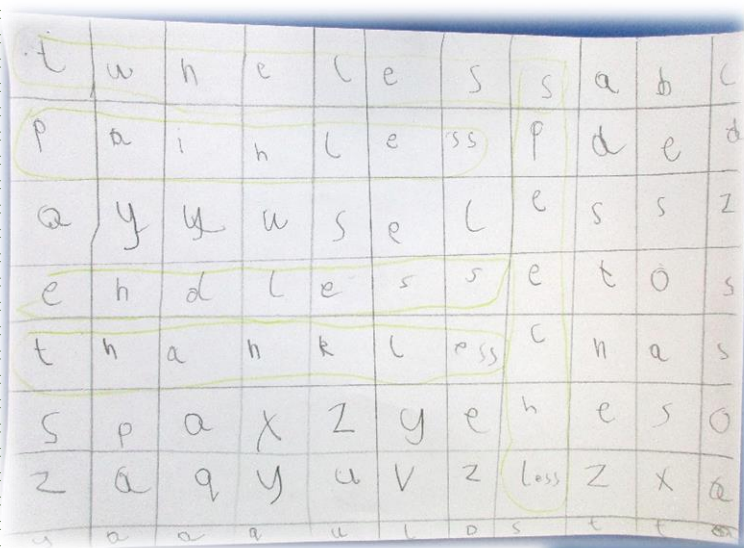 t u n e l e s s a b c
p a i n l e ss p d e d
a y y u s e l e s s z
e n d l e s s e t o s
t h a n k l ess c n a s
s p a x z y e h e s o
z a q y u v z less z x a